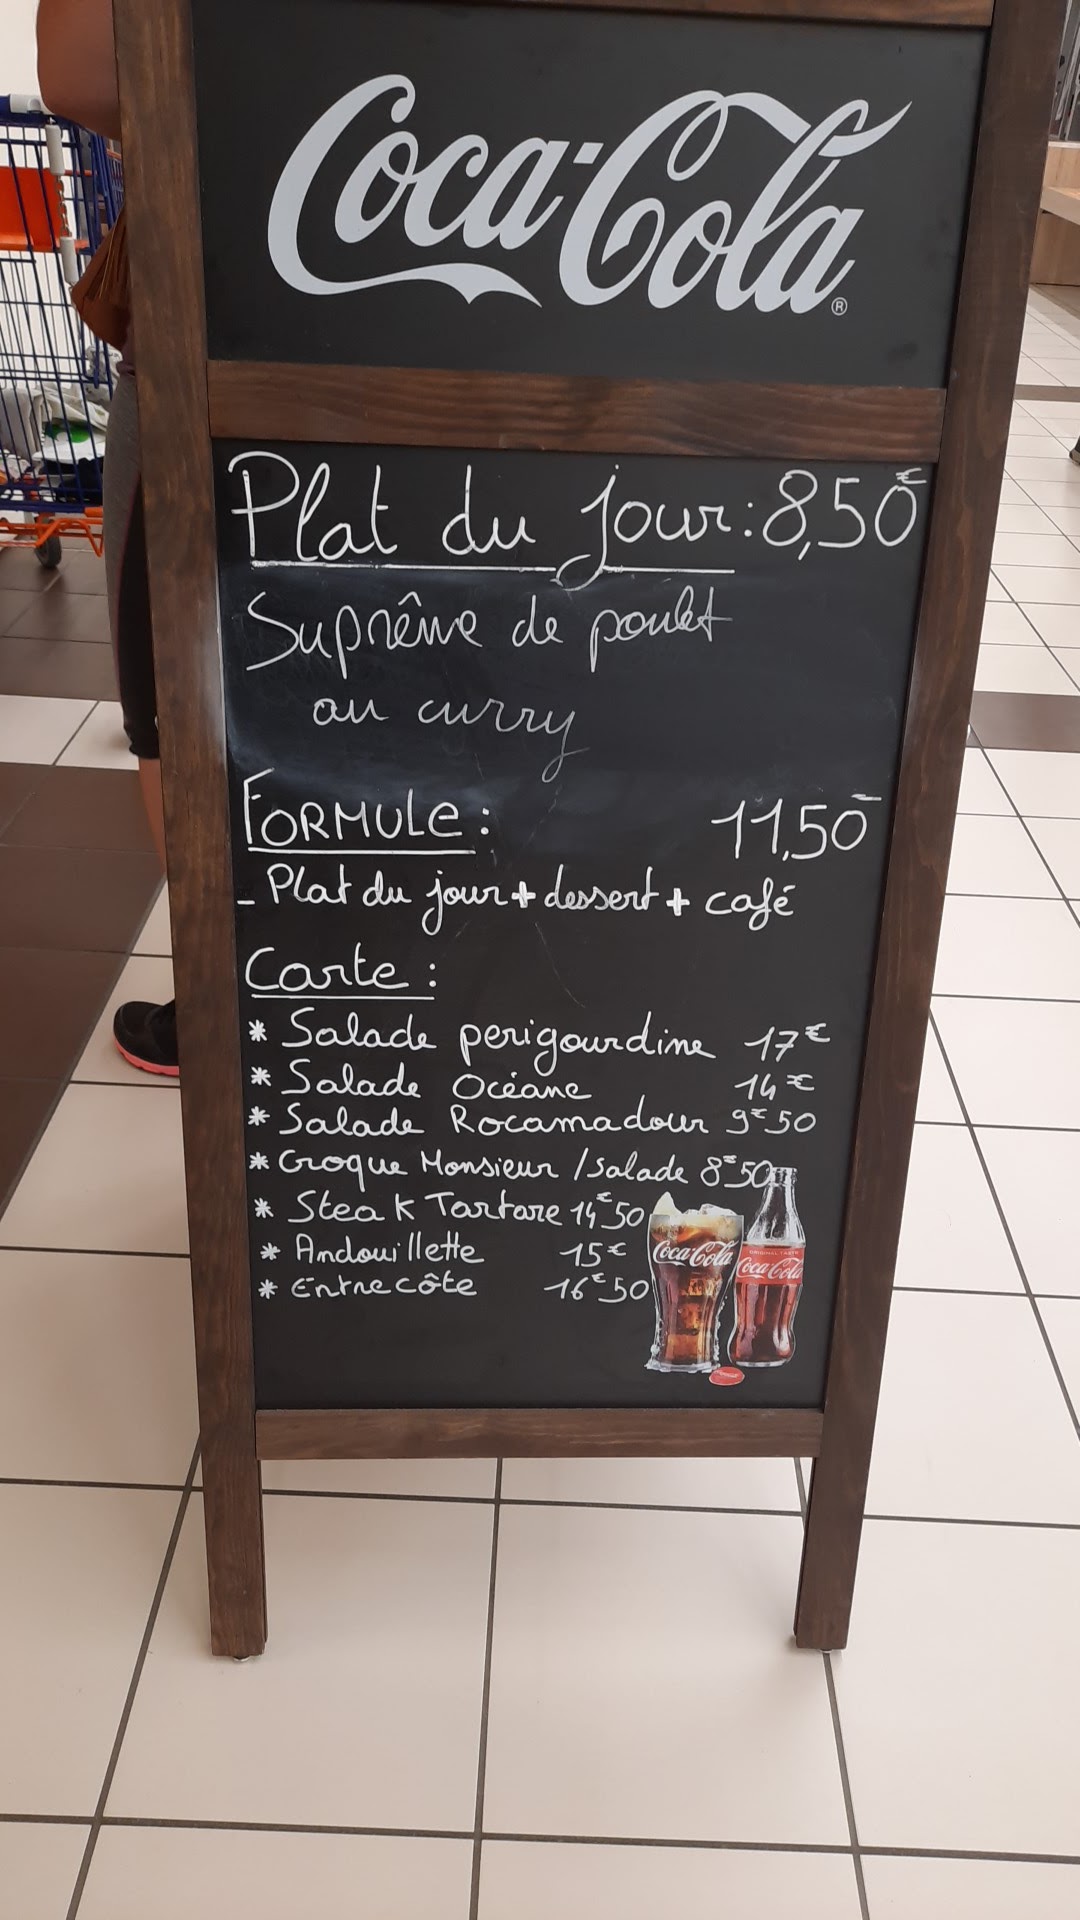 Coca-Cola ®
Plat du jour : 8,50 €
Suprême de poulet
au curry
FORMULE : 11,50
- Plat du jour + dessert + café
Carte :
* Salade perigourdine 17€
* Salade Océane 14€
* Salade Rocamadour 9€50
* Croque Monsieur /salade 8€50
* Steak Tartare 14€50
* Andouillette 15€
* Entrecôte 16€50
Coca-Cola
ORIGINAL TASTE
Coca-Cola